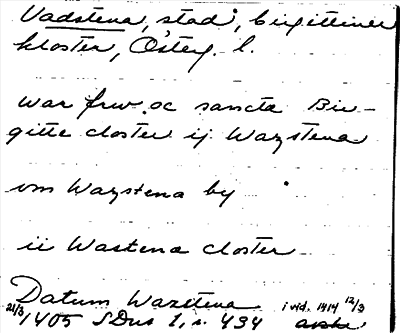 Vadstena, stad, birgittiner
kloster, Österg. l.
war frw oc sancta Bir-
gitte closter ij Wazstena
vm Wazstena by
ii Wastena closter
Datum Wazstena i vid. 1414 12/3
21/3 1405 SDns 1, s. 434